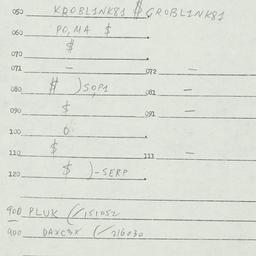 050 KROBL1NK81 $ GROBL1NK81
060 PO, MA $
070 $
071 - 072 -
080 # )SOP1 081 -
090 $ 091 -
100 0
110 $ 111 -
120 $ )-SERP
900 PLUK (/151052
900 DAXC3X (/216030